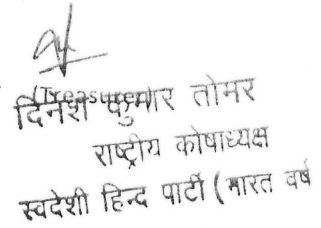 (Treasurer)
दिनेश कुमार तोमर
राष्ट्रीय कोषाध्यक्ष
स्वदेशी हिन्द पार्टी (भारत वर्ष